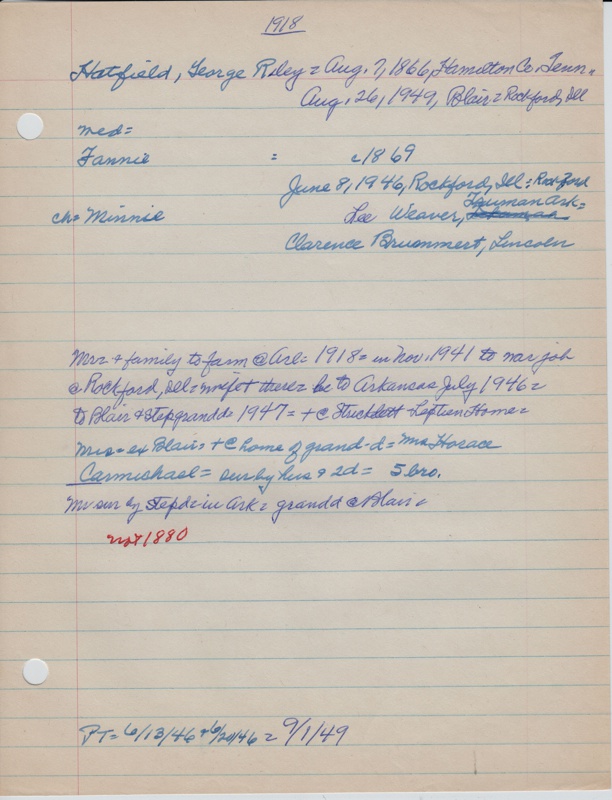 1918
Hatfield, George Riley = Aug. 7, 1866, Hamilton Co. Tenn.,
Aug. 26, 1949, Blair = Rockford, Ill
med =
Fannie = c1869
June 8, 1946, Rockford, Ill = Rockford
Truman Ark =
ch = Minnie Lee Weaver,
Clarence Bruenmert, Lincoln
Mr = & family to farm @ Arl = 1918 = in Nov. 1941 to war job
@ Rockford, Ill = wife + there = to Arkansas July 1946 =
to Blair & stepgrandd = 1947 = + @ Stricklett Home =
Mrs = ex Blair = + @ home of grand-d = Mrs Horace
Carmichael = sur by hus & 2d = 5 bro.
Mr sur by stepd = in Ark = grandd @ Blair =
not 1880
PT = 6/13/46 + 6/20/46 = 9/1/49